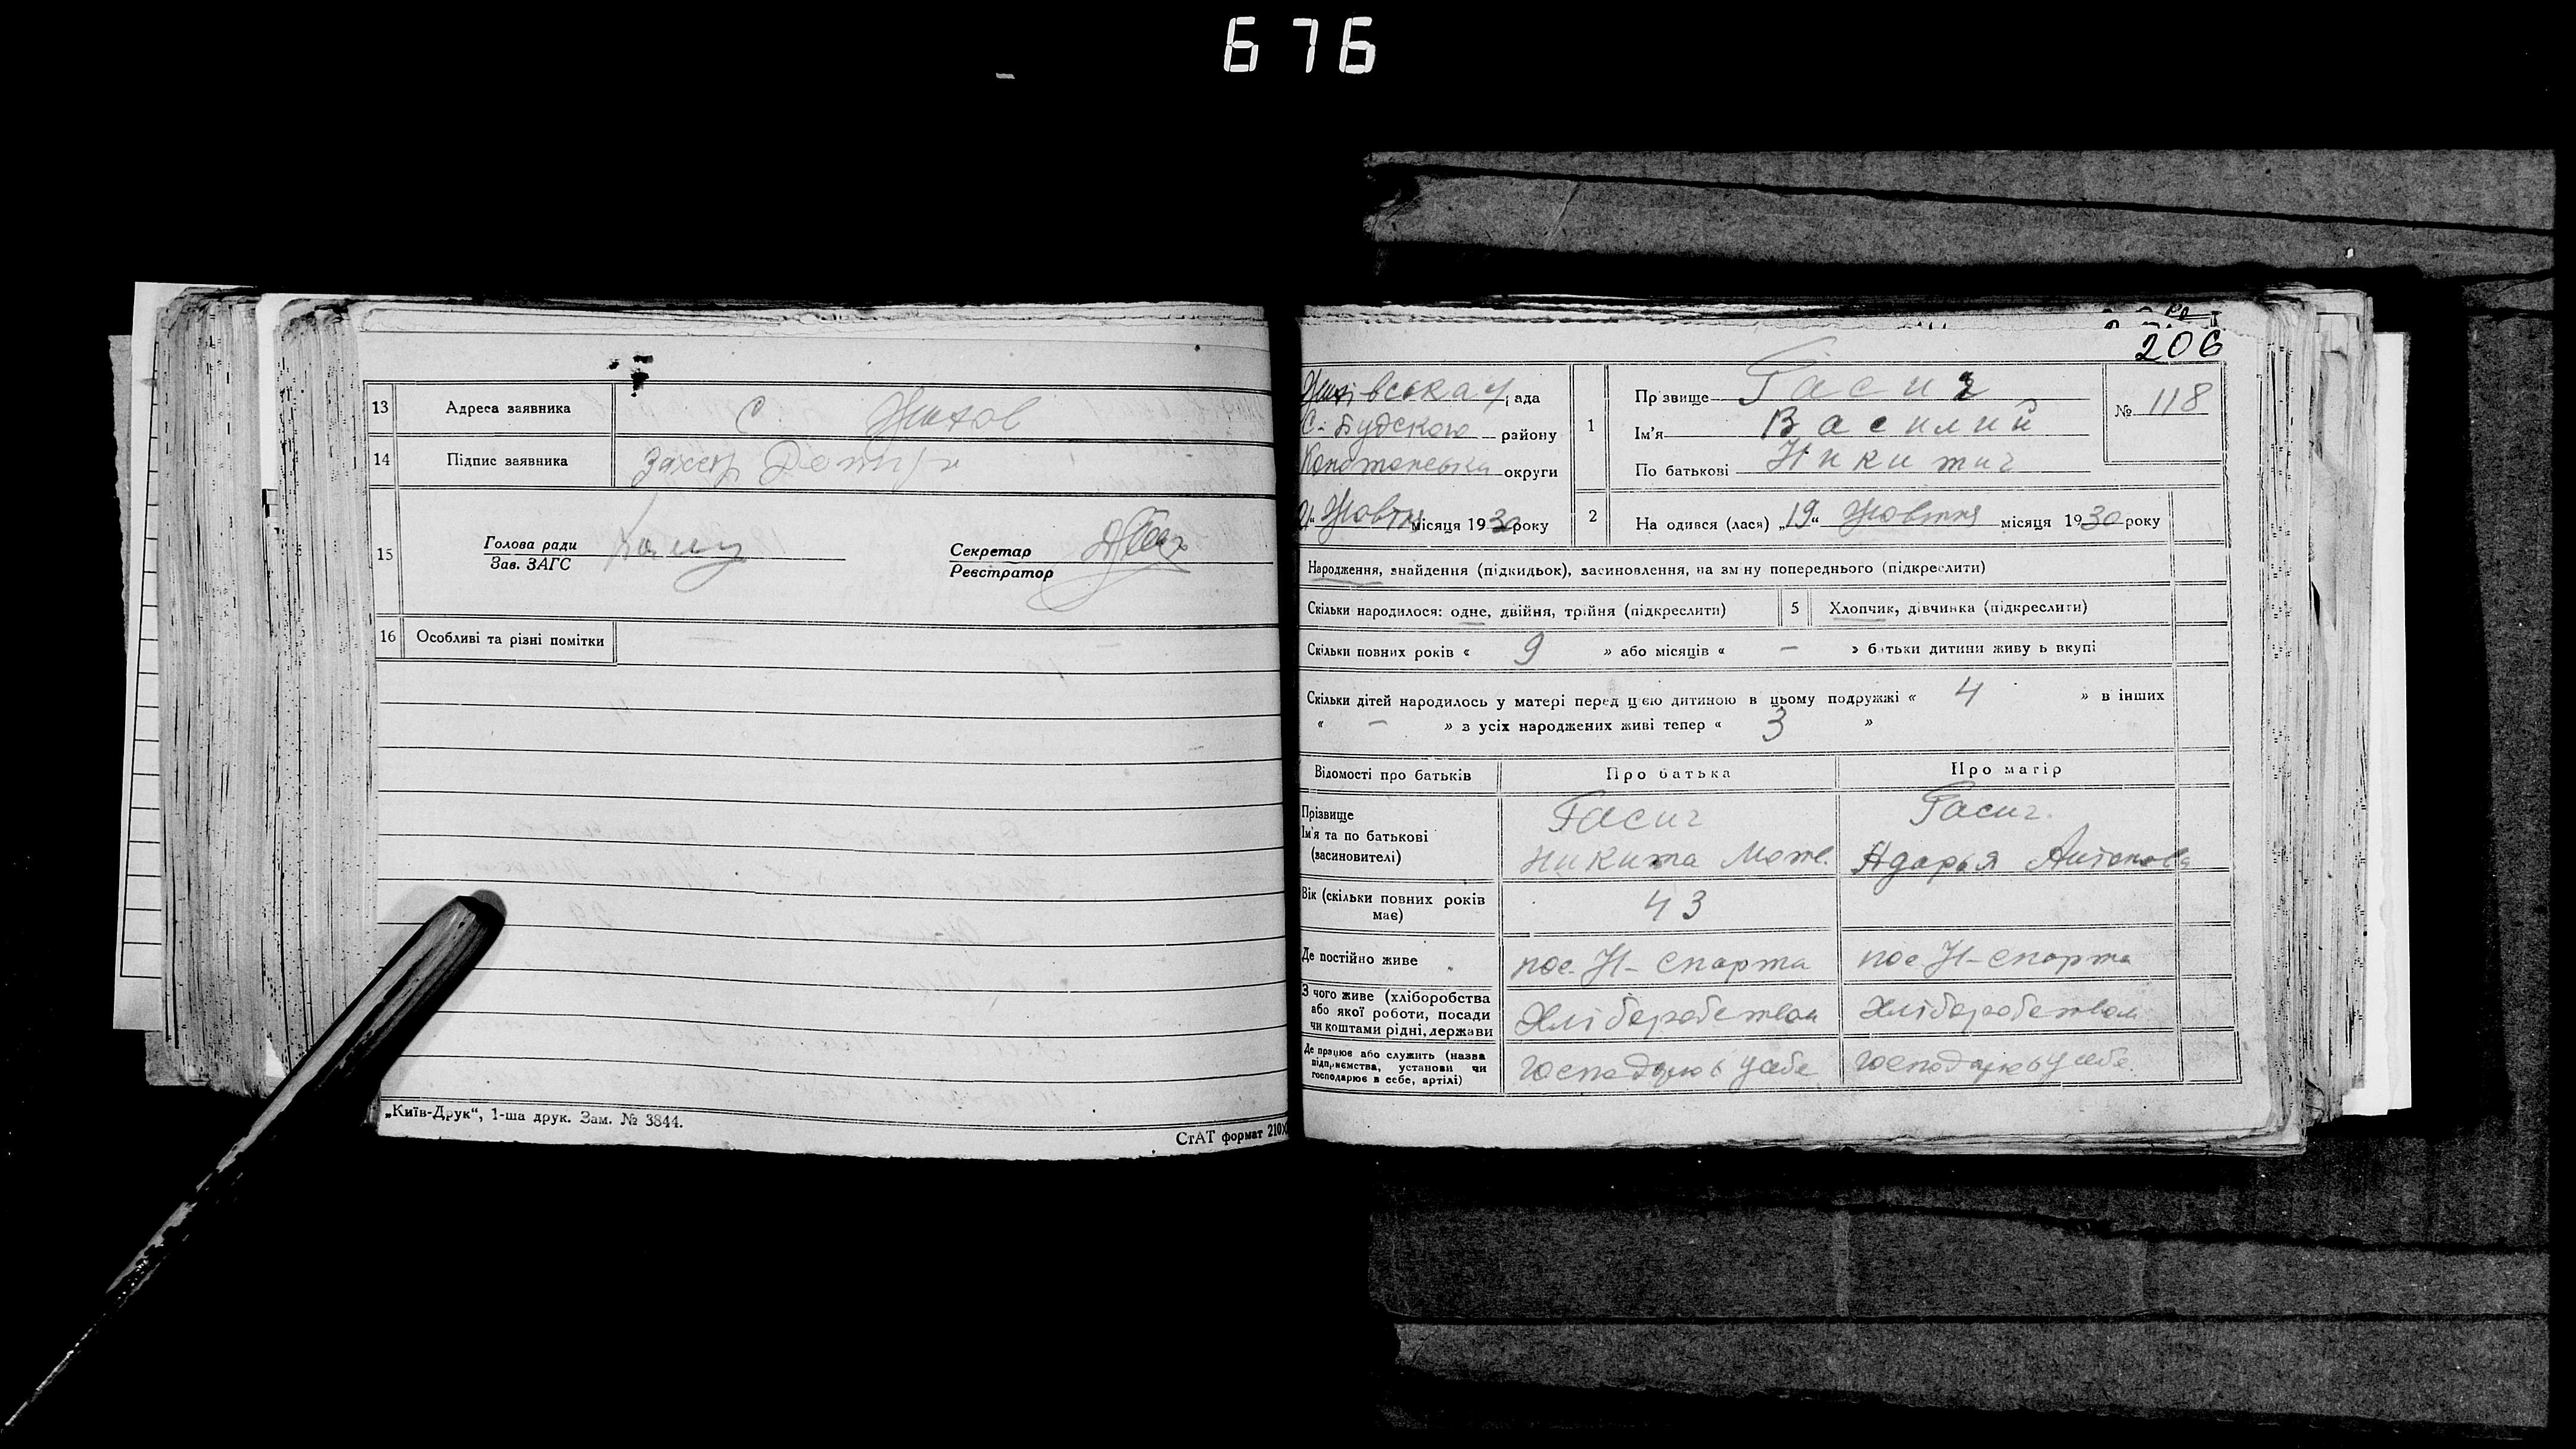 676
13 Адреса заявника С Жихов
14 Підпис заявника
15 Голова ради
Зав. ЗАГС
Секретар
Реєстратор
16 Особливі та різні помітки —
„Київ-Друк“, 1-ша друк. Зам. № 3844.
СтАТ формат 210
206
Жихівська рада
С-Будского району
округи
Жовтня місяця 1930 року
1 Прізвище Гасич
Ім'я Василий
По батькові Никитич
№ 118
2 На одився (лася) „19“ Жовтня місяця 1930 року
Народження, знайдення (підкидьок), засиновлення, на зміну попереднього (підкреслити)
Скільки народилося: одне, двійня, трійня (підкреслити) 5 Хлопчик, дівчинка (підкреслити)
Скільки повних років « 9 » або місяців « — » батьки дитини живу ь вкупі
Скільки дітей народилось у матері перед цією дитиною в цьому подружжі « 4 » в інших
« — » з усіх народжених живі тепер « 3 »
Відомості про батьків Про батька Про матір
Прізвище Гасич Гасич.
Ім'я та по батькові
(засновителі) Никита Адарья Антонова
Вік (скільки повних років має) 43
Де постійно живе пос. Н- Спарта пос. Н- Спарта
З чого живе (хліборобства
або якої роботи, посади
чи коштами рідні, держави Хліборобством Хліборобством
Де працює або служить (назва
підприємства, установи чи
господарює в себе, артілі)